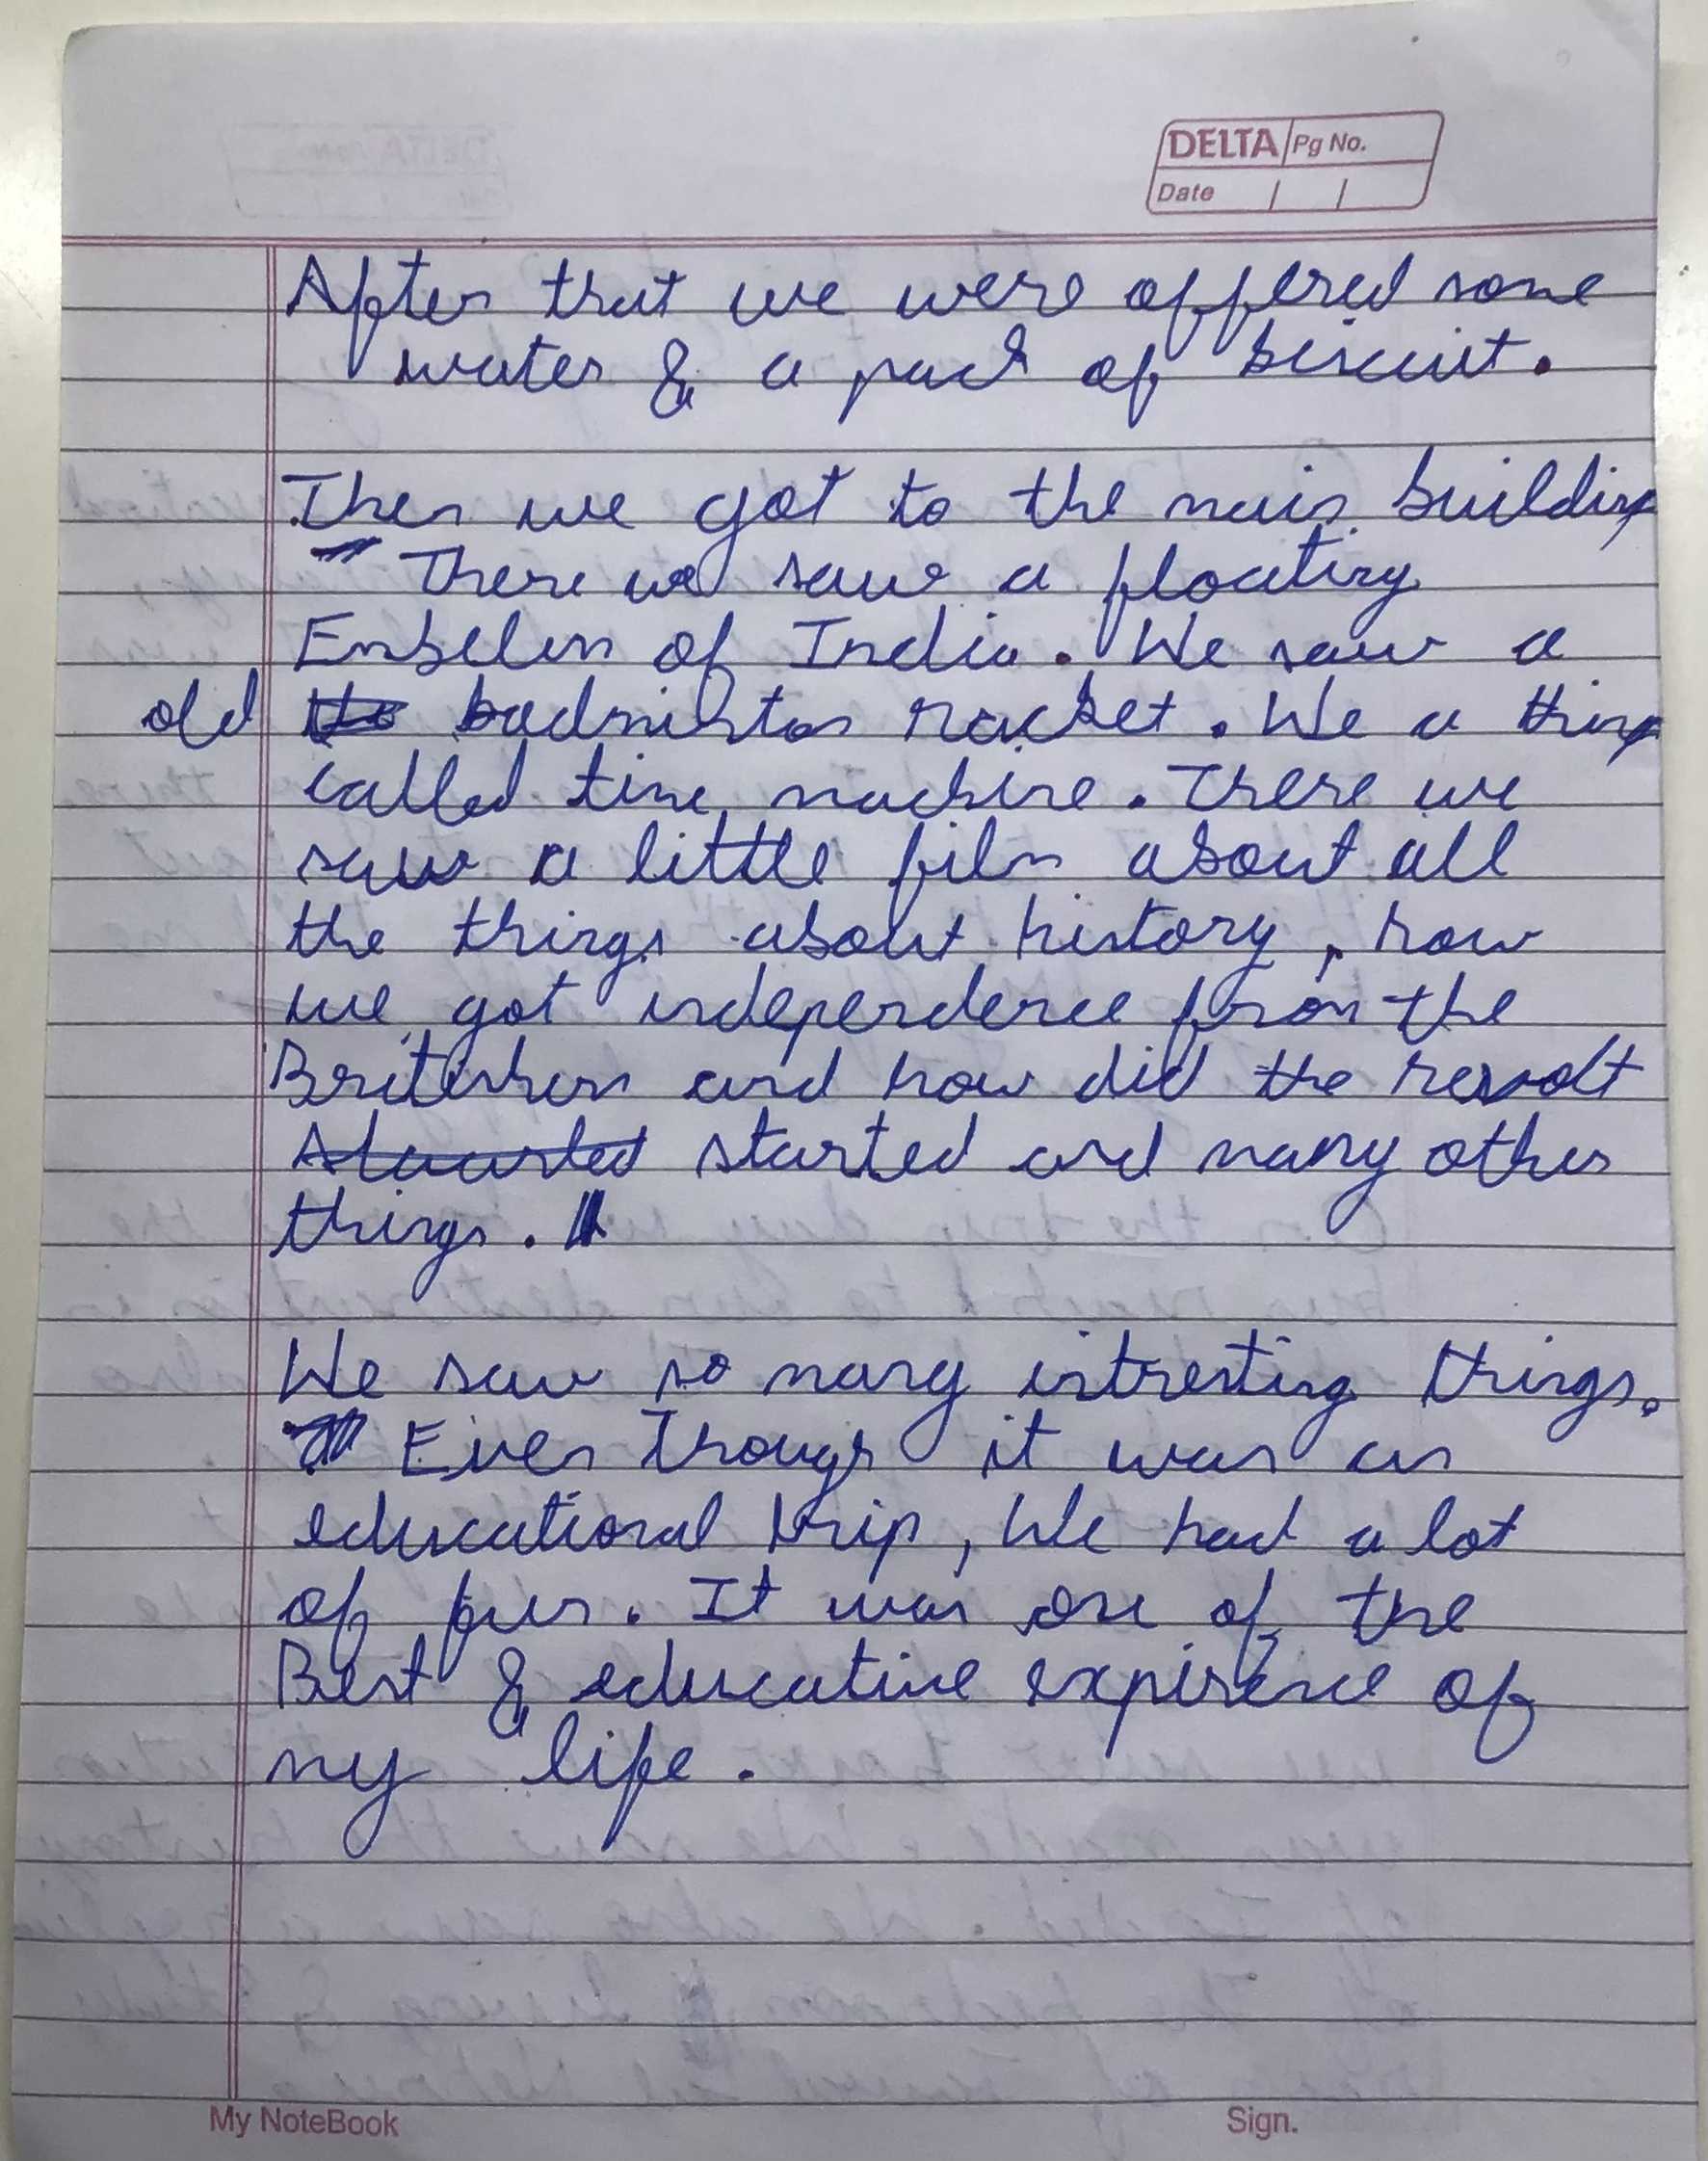 DELTA Pg No.
Date / /
After that we were offered some
water & a pack of biscuit.
Then we got to the main building
There we saw a floating
Embelem of India. We saw a
old badminton racket. We a thing
called time machine. There we
saw a little film about all
the things about history, how
we got independence from the
Britishers and how did the revolt
started and many other
things.
We saw so many intresting things.
Even though it was an
educational trip, We had a lot
of fun. It was one of the
Best & educative expirence of
my life.
My NoteBook Sign.